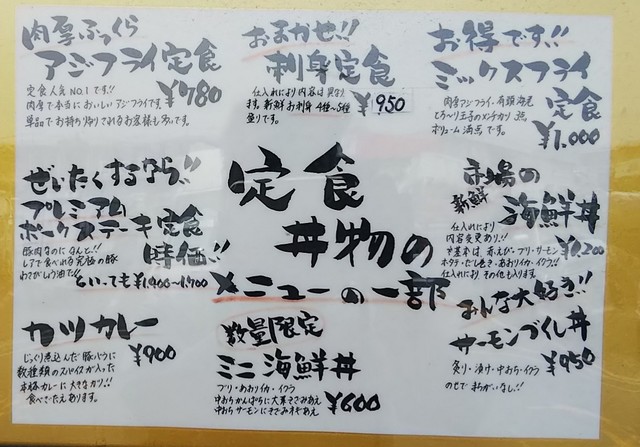 肉厚ふっくら
アジフライ定食
定食人気NO.1です!!
肉厚で本当においしいアジフライです。
単品でお持ち帰りされるお客様も多いです。
¥780
おまかせ!!
刺身定食
仕入れにより内容は異なり
ます。新鮮お刺身4種〜5種
盛りです。
¥950
お得です!!
ミックスフライ
定食
肉厚アジフライ・有頭海老
とろ〜り玉子のメンチカツ
ボリューム満点です。
¥1,000
ぜいたくするなら!!
プレミアム
ポークステーキ定食
豚肉なのになんと!!
レアで食べれる究極の豚
わさびしょう油で!!
時価!!
といっても¥1,400〜1,700
定食
丼物の
メニューの一部
市場の
新鮮
海鮮丼
仕入れにより
内容変更あり!!
基本は 赤えび・ブリ・サーモン
ホタテ・だし巻き・あおりイカ・イクラ!!
仕入れにより その他も入ります。
¥1,200
カツカレー
じっくり煮込んだ豚バラに
数種類のスパイスが入った
本格カレーに大きなカツ!!
食べごたえあります。
¥900
数量限定
ミニ海鮮丼
ブリ・あおりイカ・イクラ
中おちかんぱちに大葉きざみあえ
中おちサーモンにきざみネギあえ
¥600
みんな大好き!!
サーモンづくし丼
炙り・漬け・中おち・イクラ
のせでまちがいなし!!
¥950